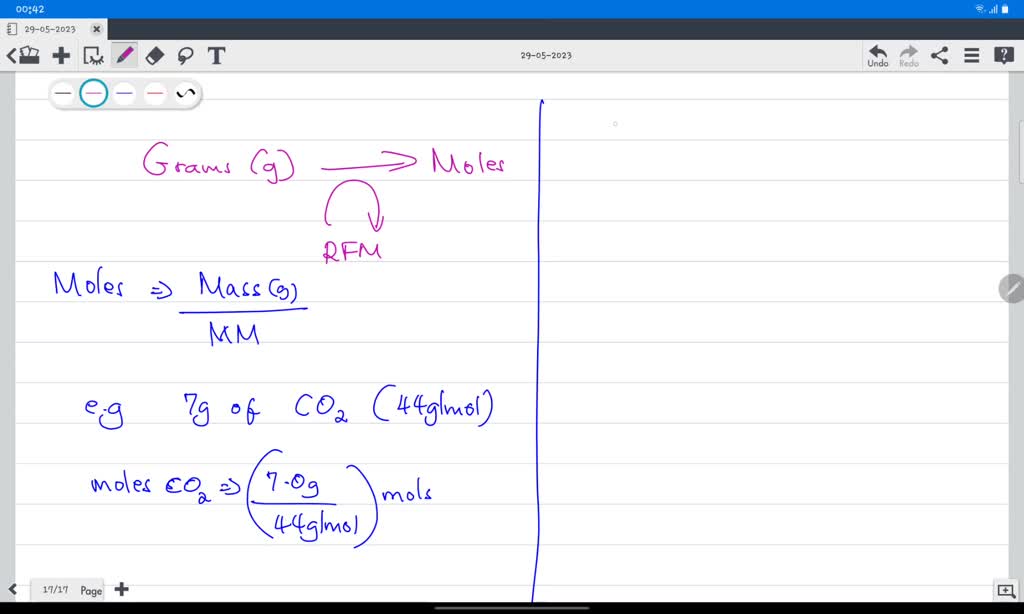 00:42
29-05-2023
T
29-05-2023
Undo
Redo
?
Grams (g) → Moles
RFM
Moles ⇒ Mass(g)
MM
e.g 7g of CO₂ (44g/mol)
moles CO₂ ⇒ (7.0g
44g/mol) mols
17/17 Page